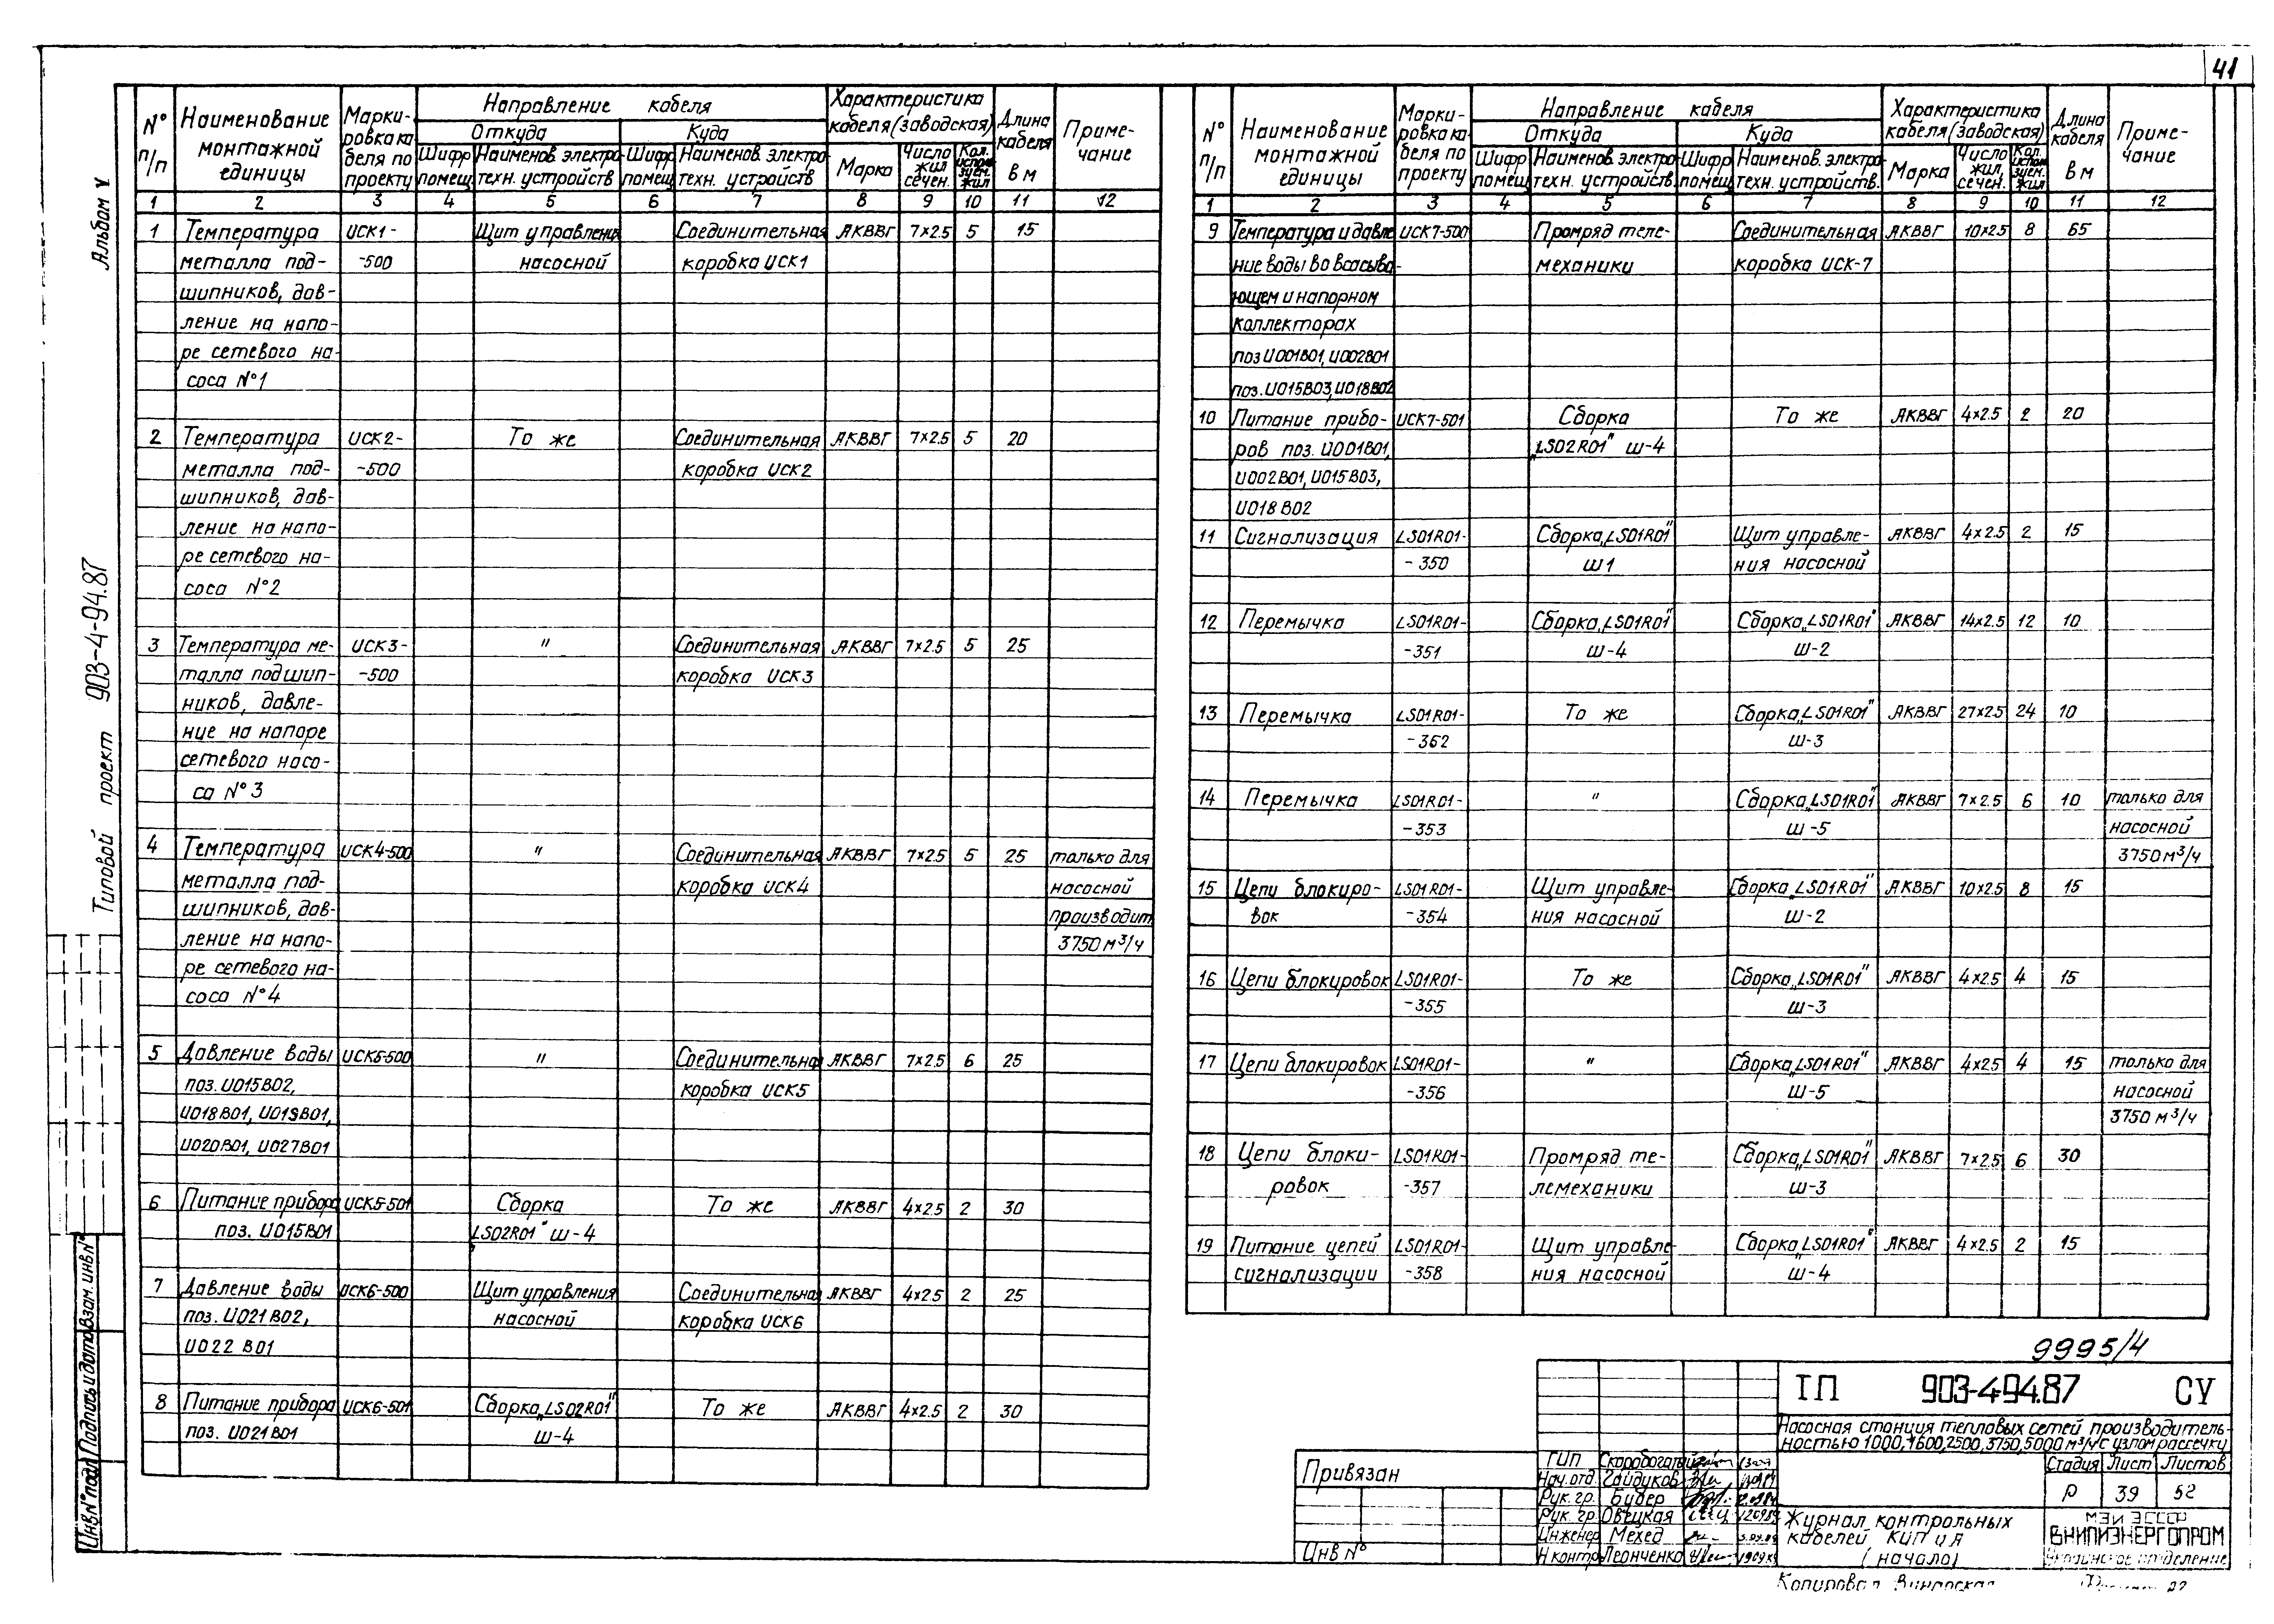 41
Альбом V
Типовой проект 903-4-94.87
Инв N° подл Подпись и дата Взам. инв N°
N° п/п | Наименование монтажной единицы | Марки-ровка ка-беля по проекту | Направление кабеля | Характеристика кабеля (заводская) | Длина кабеля в м | Приме-чание
Откуда | Куда
Шифр помещ | Наименов. электро-техн. устройств | Шифр помещ | Наименов. электро-техн. устройств | Марка | Число жил сечен. | Кол. используем. жил
1 2 3 4 5 6 7 8 9 10 11 12
1 Температура UСК1- Щит управления Соединительная АКВВГ 7×2.5 5 15
металла под- -500 насосной коробка UСК1
шипников, дав-
ление на напо-
ре сетевого на-
соса N°1
2 Температура UСК2- То же Соединительная АКВВГ 7×2.5 5 20
металла под- -500 коробка UСК2
шипников, дав-
ление на напо-
ре сетевого на-
соса N°2
3 Температура ме- UСК3- " Соединительная АКВВГ 7×2.5 5 25
талла подшип- -500 коробка UСК3
ников, давле-
ние на напоре
сетевого насо-
са N°3
4 Температура UСК4-500 " Соединительная АКВВГ 7×2.5 5 25 только для
металла под- коробка UСК4 насосной
шипников, дав- производит.
ление на напо- 3750 м³/ч
ре сетевого на-
соса N°4
5 Давление воды UСК5-500 " Соединительная АКВВГ 7×2.5 6 25
поз. U015В02, коробка UСК5
U018В01, U019В01,
U020В01, U027В01
6 Питание прибора UСК5-501 Сборка То же АКВВГ 4×2.5 2 30
поз. U015В01 „LS02R01" Ш-4
7 Давление воды UСК6-500 Щит управления Соединительная АКВВГ 4×2.5 2 25
поз. U021В02, насосной коробка UСК6
U022В01
8 Питание прибора UСК6-501 Сборка „LS02R01" То же АКВВГ 4×2.5 2 30
поз. U021В01 Ш-4
N° п/п | Наименование монтажной единицы | Марки-ровка ка-беля по проекту | Направление кабеля | Характеристика кабеля (заводская) | Длина кабеля в м | Приме-чание
Откуда | Куда
Шифр помещ | Наименов. электро-техн. устройств. | Шифр помещ | Наименов. электро-техн. устройств. | Марка | Число жил, сечен. | Кол. используем. жил
1 2 3 4 5 6 7 8 9 10 11 12
9 Температура и давле- UСК7-500 Промряд теле- Соединительная АКВВГ 10×2.5 8 65
ние воды во всасыва- механики коробка UСК-7
ющем и напорном
коллекторах
поз U001В01, U002В01
поз. U015В03, U018В02
10 Питание прибо- UСК7-501 Сборка То же АКВВГ 4×2.5 2 20
ров поз. U001В01, „LS02R01" Ш-4
U002В01, U015В03,
U018В02
11 Сигнализация LS01R01- Сборка „LS01R01" Щит управле- АКВВГ 4×2.5 2 15
-350 Ш1 ния насосной
12 Перемычка LS01R01- Сборка „LS01R01" Сборка „LS01R01" АКВВГ 14×2.5 12 10
-351 Ш-4 Ш-2
13 Перемычка LS01R01- То же Сборка „LS01R01" АКВВГ 27×2.5 24 10
-362 Ш-3
14 Перемычка LS01R01- " Сборка „LS01R01" АКВВГ 7×2.5 6 10 только для
-353 Ш-5 насосной
3750 м³/ч
15 Цепи блокиро- LS01R01- Щит управле- Сборка „LS01R01" АКВВГ 10×2.5 8 15
вок -354 ния насосной Ш-2
16 Цепи блокировок LS01R01- То же Сборка „LS01R01" АКВВГ 4×2.5 4 15
-355 Ш-3
17 Цепи блокировок LS01R01- " Сборка „LS01R01" АКВВГ 4×2.5 4 15 только для
-356 Ш-5 насосной
3750 м³/ч
18 Цепи блоки- LS01R01- Промряд те- Сборка „LS01R01" АКВВГ 7×2.5 6 30
ровок -357 лемеханики Ш-3
19 Питание цепей LS01R01- Щит управле- Сборка „LS01R01" АКВВГ 4×2.5 2 15
сигнализации -358 ния насосной Ш-4
9995/4
ТП 903-4-94.87 СУ
Насосная станция тепловых сетей производитель-
ностью 1000, 1600, 2500, 3750, 5000 м³/ч с узлом рассечки
Привязан
Инв N°
ГИП Скоробогатый
Нач. отд. Гайдуков
Рук. гр. Бубер
Рук. гр. Овецкая
Инженер Мехед
Н контр. Леонченко
Стадия Лист Листов
Р 39 52
Журнал контрольных
кабелей КИП и А
(начало)
МЭИ ЭСССР
ВНИПИЭНЕРГОПРОМ
Украинское отделение
Копировал Винарская
22